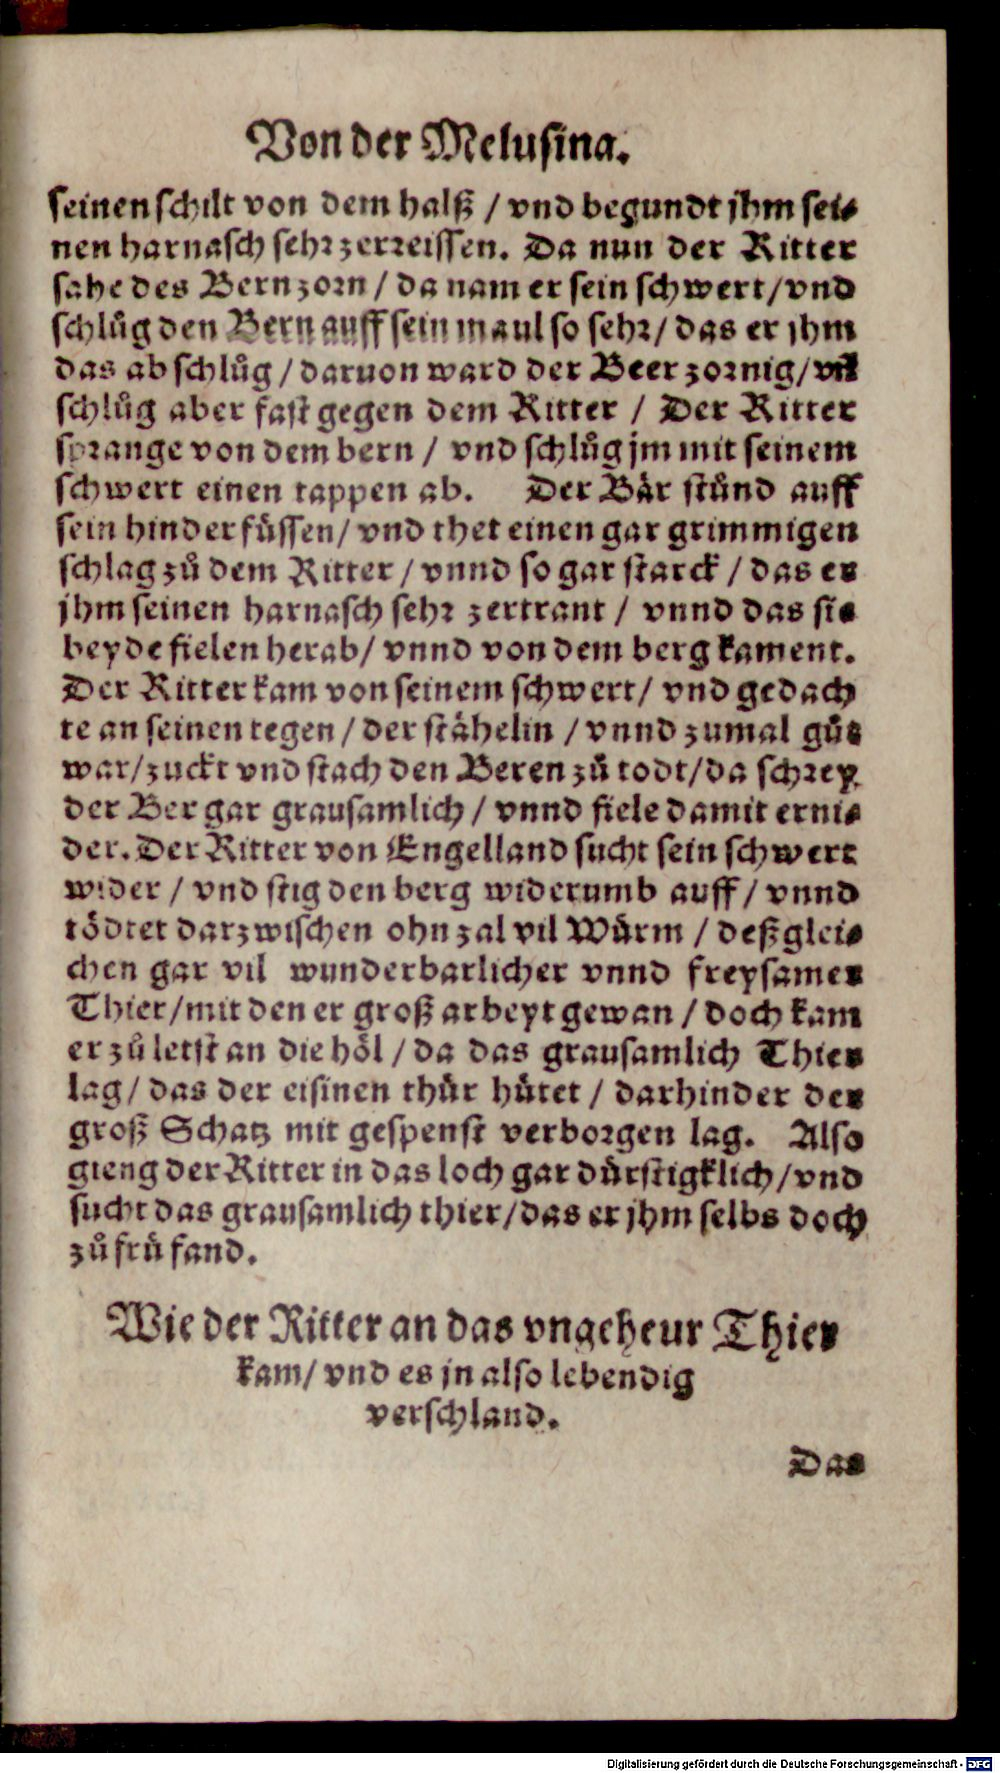 Von der Melusina.
seinen schilt von dem halß / vnd begundt jhm sei-
nen harnasch sehr zerreissen. Da nun der Ritter
sahe des Bern zorn / da nam er sein schwert / vnd
schlůg den Bern auff sein maul so sehr / das er jhm
das ab schlůg / daruon ward der Beer zornig / vñ
schlůg aber fast gegen dem Ritter / Der Ritter
sprange von dem bern / vnd schlůg jm mit seinem
schwert einen tappen ab. Der Bär stůnd auff
sein hinder füssen / vnd thet einen gar grimmigen
schlag zů dem Ritter / vnnd so gar starck / das er
jhm seinen harnasch sehr zertrant / vnnd das sie
beyde fielen herab / vnnd von dem berg kament.
Der Ritter kam von seinem schwert / vnd gedach
te an seinen tegen / der stähelin / vnnd zumal gůt
war / zuckt vnd stach den Beren zů todt / da schrey
der Ber gar grausamlich / vnnd fiele damit erni-
der. Der Ritter von Engelland sucht sein schwert
wider / vnd stig den berg widerumb auff / vnnd
tödtet darzwischen ohn zal vil Würm / deßglei-
chen gar vil wunderbarlicher vnnd freysamer
Thier / mit den er groß arbeyt gewan / doch kam
er zů letst an die höl / da das grausamlich Thier
lag / das der eisinen thür hütet / darhinder der
groß Schatz mit gespenst verborgen lag. Also
gieng der Ritter in das loch gar dürstigklich / vnd
sucht das grausamlich thier / das er jhm selbs doch
zů frü fand.
Wie der Ritter an das vngeheur Thier
kam / vnd es jn also lebendig
verschland.
Das
Digitalisierung gefördert durch die Deutsche Forschungsgemeinschaft - DFG